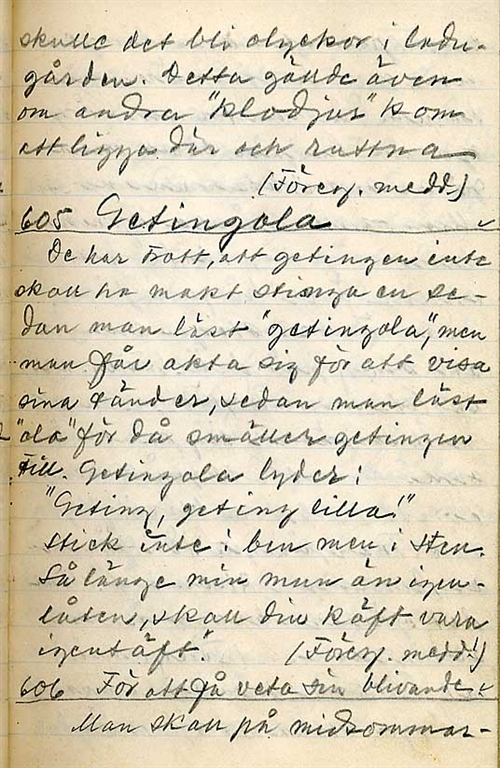 skulle det bli olyckor i ladu-
gården. Detta gällde även
om andra "klodjur" kom
att ligga där och ruttna
(Föreg. medd.)
605 Getingola
De har trott, att getingen inte
skall ha makt stinga en se-
dan man läst "getingola", men
man får akta sig för att visa
sina tänder, sedan man läst
"ola" för då smäller getingen
till. Getingola lyder:
"Geting, geting lilla!"
Stick inte i ben men i sten.
Så länge min mun än igen-
låten, skall din käft vara
igentäft". (Föreg. medd!)
606 För att få veta sin blivande
Man skall på midsommar-